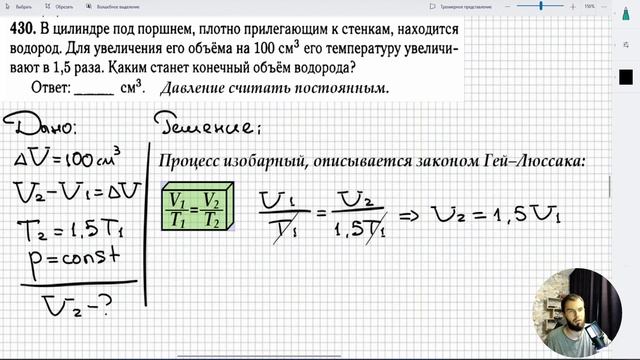 Выбрать
Обрезать
Волшебное выделение
Трехмерное представление
150%
430. В цилиндре под поршнем, плотно прилегающим к стенкам, находится
водород. Для увеличения его объёма на 100 см³ его температуру увеличи-
вают в 1,5 раза. Каким станет конечный объём водорода?
Ответ: _____ см³. Давление считать постоянным.
Дано: Решение:
ΔV = 100 см³
Процесс изобарный, описывается законом Гей–Люссака:
V₂ − V₁ = ΔV
V₁/T₁ = V₂/T₂ V₁/T₁ = V₂/1,5T₁ ⇒ V₂ = 1,5V₁
T₂ = 1,5T₁
p = const
V₂ − ?